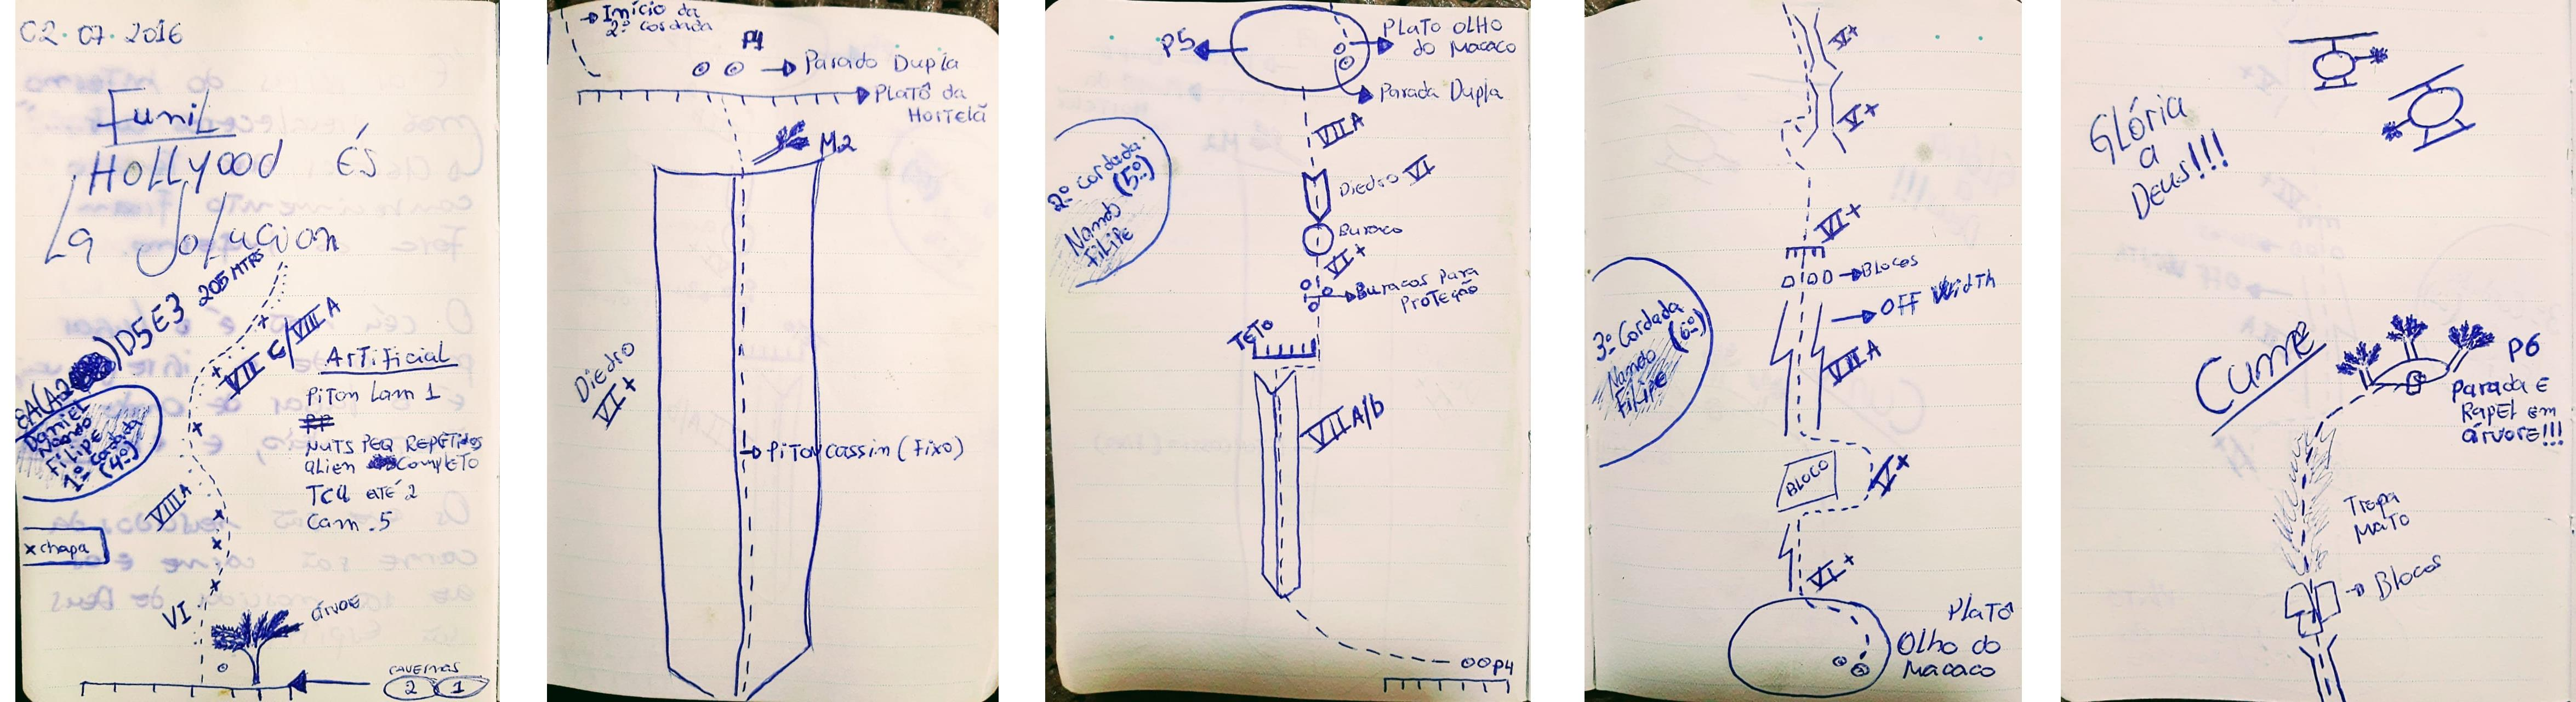 02.07.2016
Funil
Hollyood És
La Solucion
205 MTRS
D5E3
VII C/VIII A
Artificial
Piton Lam 1
NUTS PEQ REPETIDOS
Alien Completo
TCU ATÉ 2
Cam .5
EA(A2
Daniel
Nando
Filipe
1º Cordada
(4º)
VIII A
x chapa
VI
árvoe
CAVERNAS
2 1
Início da
2º Cordada
P4
Parada Dupla
Platô da
Hortelã
M.2
Diedro
VI+
Piton cassin (Fixo)
P5
Plato OLHO
do Macaco
Parada Dupla
VII A
2º cordada
(5º)
Nando
Filipe
Diedro VI
Buraco
VI+
Buracos Para
Proteção
TETO
VII A/b
P4
V+
V+
VI+
Blocos
OFF Width
3º Cordada
(6º)
Nando
Filipe
VII A
BLOCO
V+
VI+
Platô
Olho do
Macaco
Glória
a
Deus!!!
Cume
P6
Parada E
Rapel em
árvore!!!
Trepa
Mato
Blocos